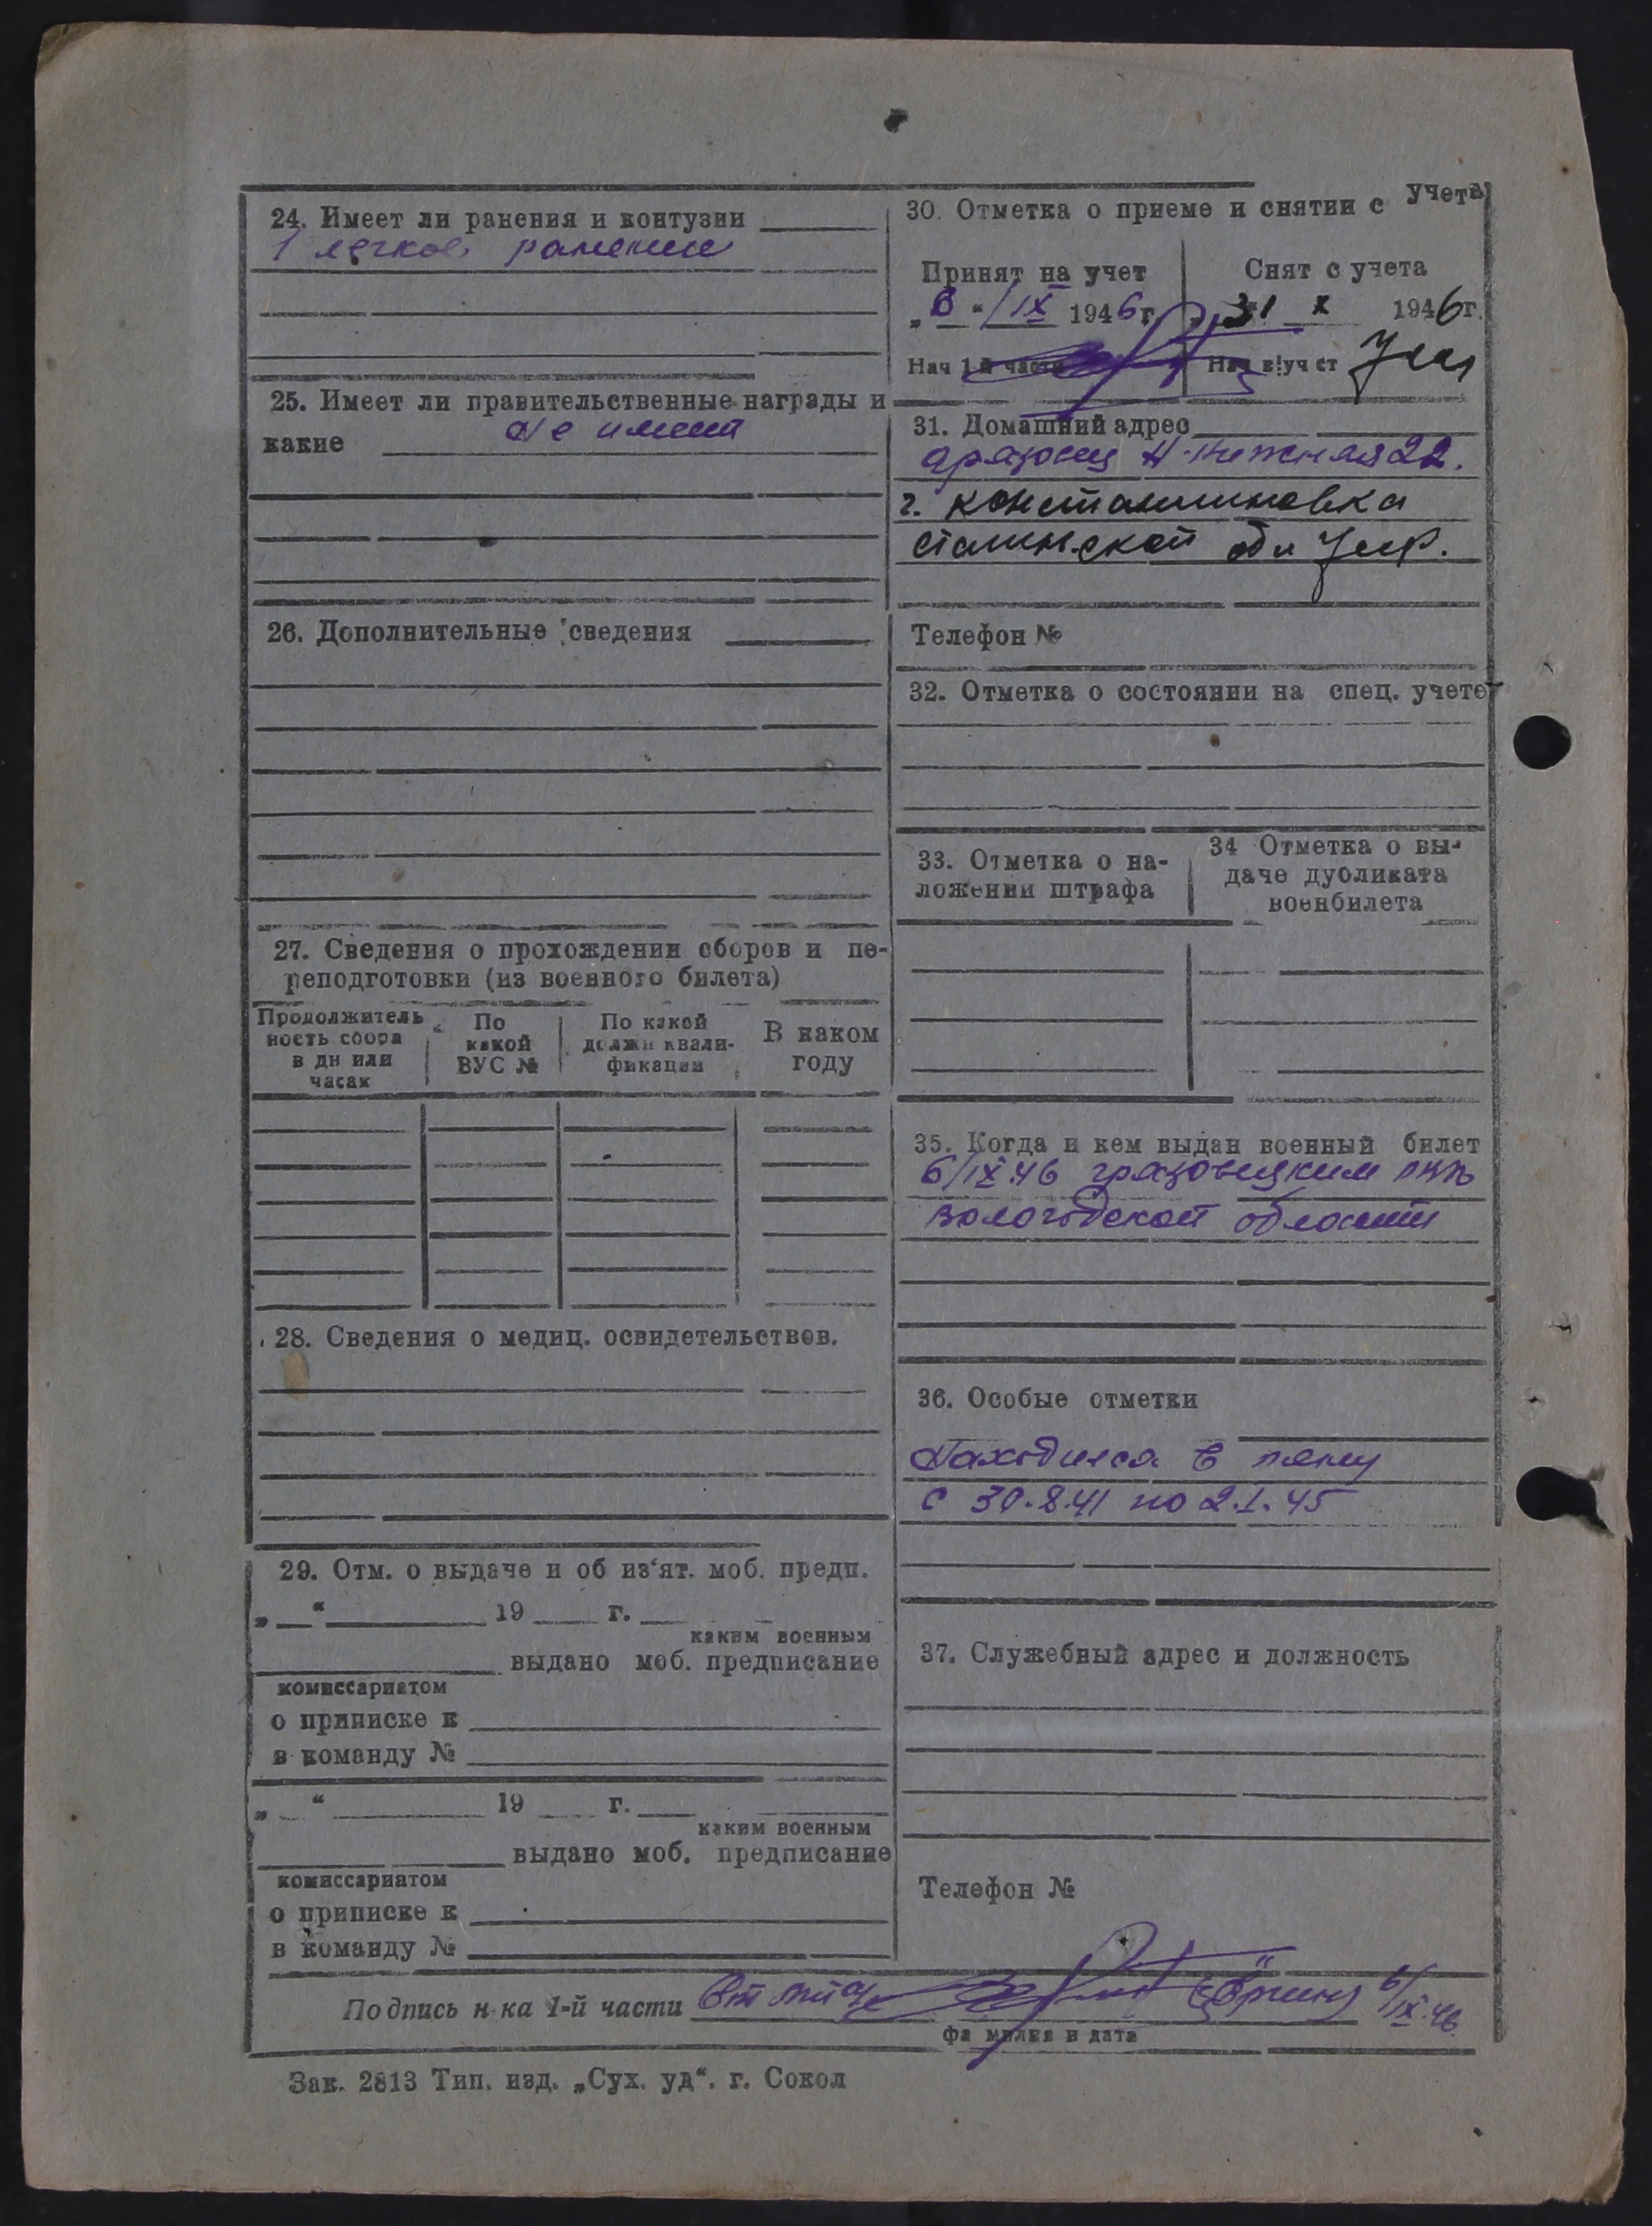 24. Имеет ли ранения и контузии
1 легкое ранение
25. Имеет ли правительственные награды и
какие Не имеет
26. Дополнительные сведения
27. Сведения о прохождении сборов и пе-
реподготовки (из военного билета)
Продолжитель
ность сбора
в дн или
часах
По
какой
ВУС №
По какой
должн квали-
фикации
В каком
году
28. Сведения о медиц. освидетельствов.
29. Отм. о выдаче и об из‘ят. моб. предп.
„ “ 19 г.
каким военным
выдано моб. предписание
комиссариатом
о приписке к
в команду №
„ “ 19 г.
каким военным
выдано моб. предписание
комиссариатом
о приписке к
в команду №
30. Отметка о приеме и снятии с учета
Принят на учет
„6“ IX 1946г.
Нач 1-й части
Снят с учета
31 X 1946г.
Нач в/уч ст
31. Домашний адрес
22.
г. Константиновка
Сталинской обл
Телефон №
32. Отметка о состоянии на спец. учете
33. Отметка о на-
ложении штрафа
34 Отметка о вы-
даче дубликата
военбилета
35. Когда и кем выдан военный билет
6/IX.46 грязовецким РВК
вологодской области
36. Особые отметки
Находился в плену
с 30.8.41 по 2.1.45
37. Служебный адрес и должность
Телефон №
Подпись н-ка 1-й части 6/IX.46
фамилия и дата
Зак. 2813 Тип. изд. „Сух. уд“. г. Сокол